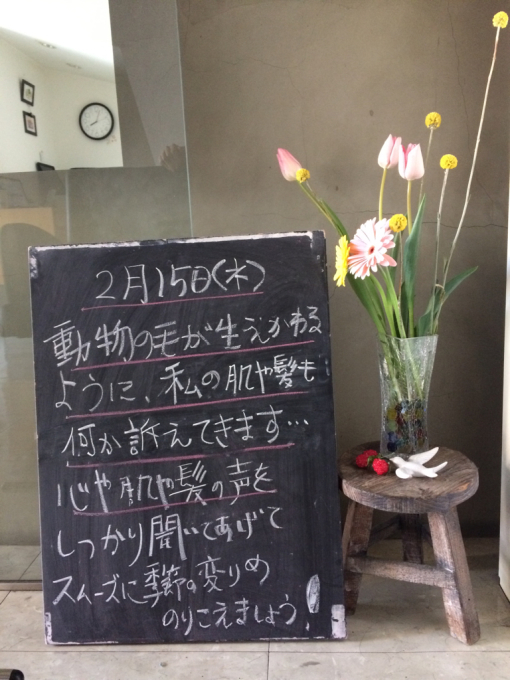 2月15日(木)
動物の毛が生えかわる
ように、私の肌や髪も
何か訴えてきます…
心や肌や髪の声を
しっかり聞いてあげて
スムーズに季節の変りめ
のりこえましょう!